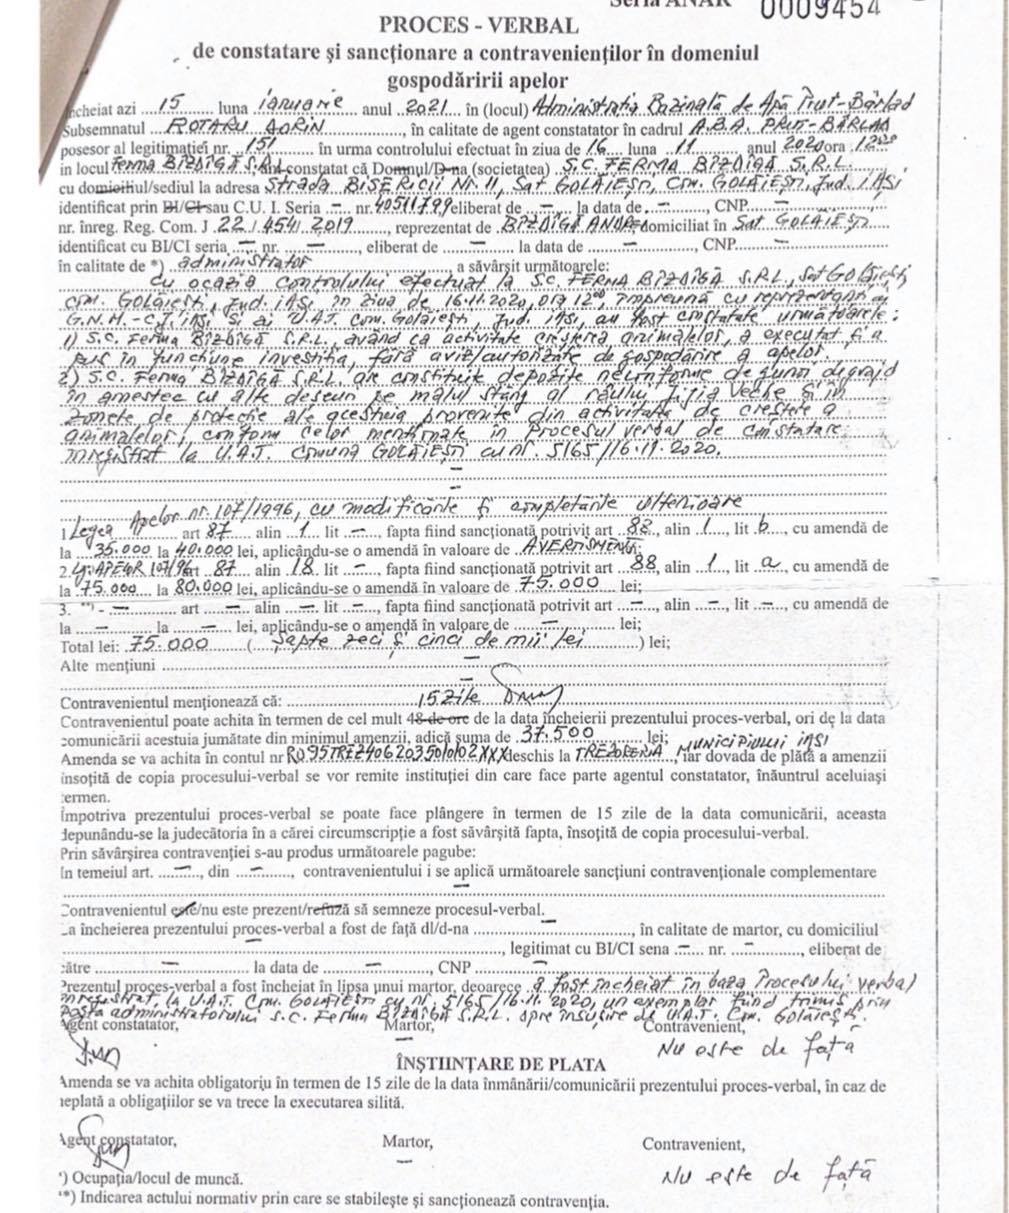 Seria ANAR 0009454
PROCES - VERBAL
de constatare și sancționare a contravenienților în domeniul
gospodăririi apelor
încheiat azi ....15........ luna ianuarie.... anul ..2021.. în (locul) Administratia Bazinală de Apă Prut-Bârlad
Subsemnatul ..ROTARU SORIN............, în calitate de agent constatator în cadrul A.B.A. PRUT-BÂRLAD
posesor al legitimației nr. ..151........ în urma controlului efectuat în ziua de .16.... luna ..11....... anul 2020 ora 12⁰⁰
în locul Ferma BÎZDÎGĂ S.R.L. am constatat că Domnul/D-na (societatea) .S.C. FERMA BÎZDÎGĂ S.R.L.
cu domiciliul/sediul la adresa Strada BISERICII Nr. 11, Sat GOLĂIEȘTI, Com. GOLĂIEȘTI, Jud. IAȘI
identificat prin BI/CI sau C.U. I. Seria .–.. nr. 40511799 eliberat de ..–.. la data de .–......, CNP ........–........
nr. înreg. Reg. Com. J 22/454/2019......., reprezentat de BÎZDÎGĂ ANDREI domiciliat în Sat GOLĂIEȘTI
identificat cu BI/CI seria ..–.. nr. ....–......, eliberat de .....–..... la data de ......–........, CNP.....–..........
în calitate de *) .administrator.................., a săvârșit următoarele:
Cu ocazia controlului efectuat la S.C. FERMA BÎZDÎGĂ S.R.L., sat Golăiești
Com. GOLĂIEȘTI, Jud. IAȘI, în ziua de 16.11.2020, ora 12⁰⁰, împreună cu reprezentanți ai
G.N.M.-C.J. IAȘI și ai U.A.T. Com. Golăiești, Jud. IAȘI, au fost constatate următoarele:
1) S.C. Ferma BÎZDÎGĂ S.R.L., având ca activitate creșterea animalelor, a executat și a
pus în funcțiune investiția, fără aviz/autorizație de gospodărire a apelor.
2) S.C. Ferma BÎZDÎGĂ S.R.L. are constituite depozite neconforme de gunoi de grajd
în amestec cu alte deșeuri pe malul stâng al râului Jijia Veche și în
zonele de protecție ale acesteia provenite din activitatea de creștere a
animalelor, conform celor menționate în Procesul verbal de constatare
înregistrat la U.A.T. Comuna GOLĂIEȘTI cu nr. 5165/16.11.2020.
–
–
1 Legea Apelor nr. 107/1996, cu modificările și completările ulterioare
art 87..... alin ...1... lit .–..., fapta fiind sancționată potrivit art ..88.., alin .1..., lit b..., cu amendă de
la ..35.000 la 40.000 lei, aplicându-se o amendă în valoare de ..AVERTISMENT;
2. L. APELOR 107/96 art ..87.... alin .18. lit .–..., fapta fiind sancționată potrivit art ..88, alin ..1.., lit ..a.., cu amendă de
la .75.000 ... la 80.000 lei, aplicându-se o amendă în valoare de 75.000 ....... lei;
3. **) - –........ art ..–.. alin ..–.. lit ..–..., fapta fiind sancționată potrivit art ...–..., alin ..–.., lit ..–..., cu amendă de
la .....–...... la .....–...... lei, aplicându-se o amendă în valoare de .....–............ lei;
Total lei: .75.000 ........ (....Șapte zeci și cinci de mii lei............) lei;
Alte mențiuni ..........–..........
–
Contravenientul menționează că: ..........................15 zile
Contravenientul poate achita în termen de cel mult 48 de ore de la data încheierii prezentului proces-verbal, ori de la data
comunicării acestuia jumătate din minimul amenzii, adică suma de .37.500 .............. lei;
Amenda se va achita în contul nr RO95TREZ4062035010102XXX deschis la TREZORERIA MUNICIPIULUI IAȘI, iar dovada de plată a amenzii
însoțită de copia procesului-verbal se vor remite instituției din care face parte agentul constatator, înăuntrul aceluiași
termen.
Împotriva prezentului proces-verbal se poate face plângere în termen de 15 zile de la data comunicării, aceasta
depunându-se la judecătoria în a cărei circumscripție a fost săvârșită fapta, însoțită de copia procesului-verbal.
Prin săvârșirea contravenției s-au produs următoarele pagube:
În temeiul art. ...–....., din ....–......, contravenientului i se aplică următoarele sancțiuni contravenționale complementare
–
Contravenientul este/nu este prezent/refuză să semneze procesul-verbal.
La încheierea prezentului proces-verbal a fost de față dl/d-na ......–......, în calitate de martor, cu domiciliul
..........–.........., legitimat cu BI/CI seria ..–.. nr. ..–........, eliberat de
către ........–........ la data de ....–......, CNP ......–......
Prezentul proces-verbal a fost încheiat în lipsa unui martor, deoarece ..a fost încheiat în baza Procesului verbal
înregistrat la U.A.T. Com. GOLĂIEȘTI cu nr. 5165/16.11.2020, un exemplar fiind trimis prin
Poșta administratorului S.C. Ferma BÎZDÎGĂ S.R.L. spre însușire de U.A.T. Com. Golăiești.
Agent constatator, Martor, Contravenient,
– Nu este de față
ÎNȘTIINȚARE DE PLATA
Amenda se va achita obligatoriu în termen de 15 zile de la data înmânării/comunicării prezentului proces-verbal, în caz de
neplată a obligațiilor se va trece la executarea silită.
Agent constatator, Martor, Contravenient,
– Nu este de față
*) Ocupația/locul de muncă.
**) Indicarea actului normativ prin care se stabilește și sancționează contravenția.